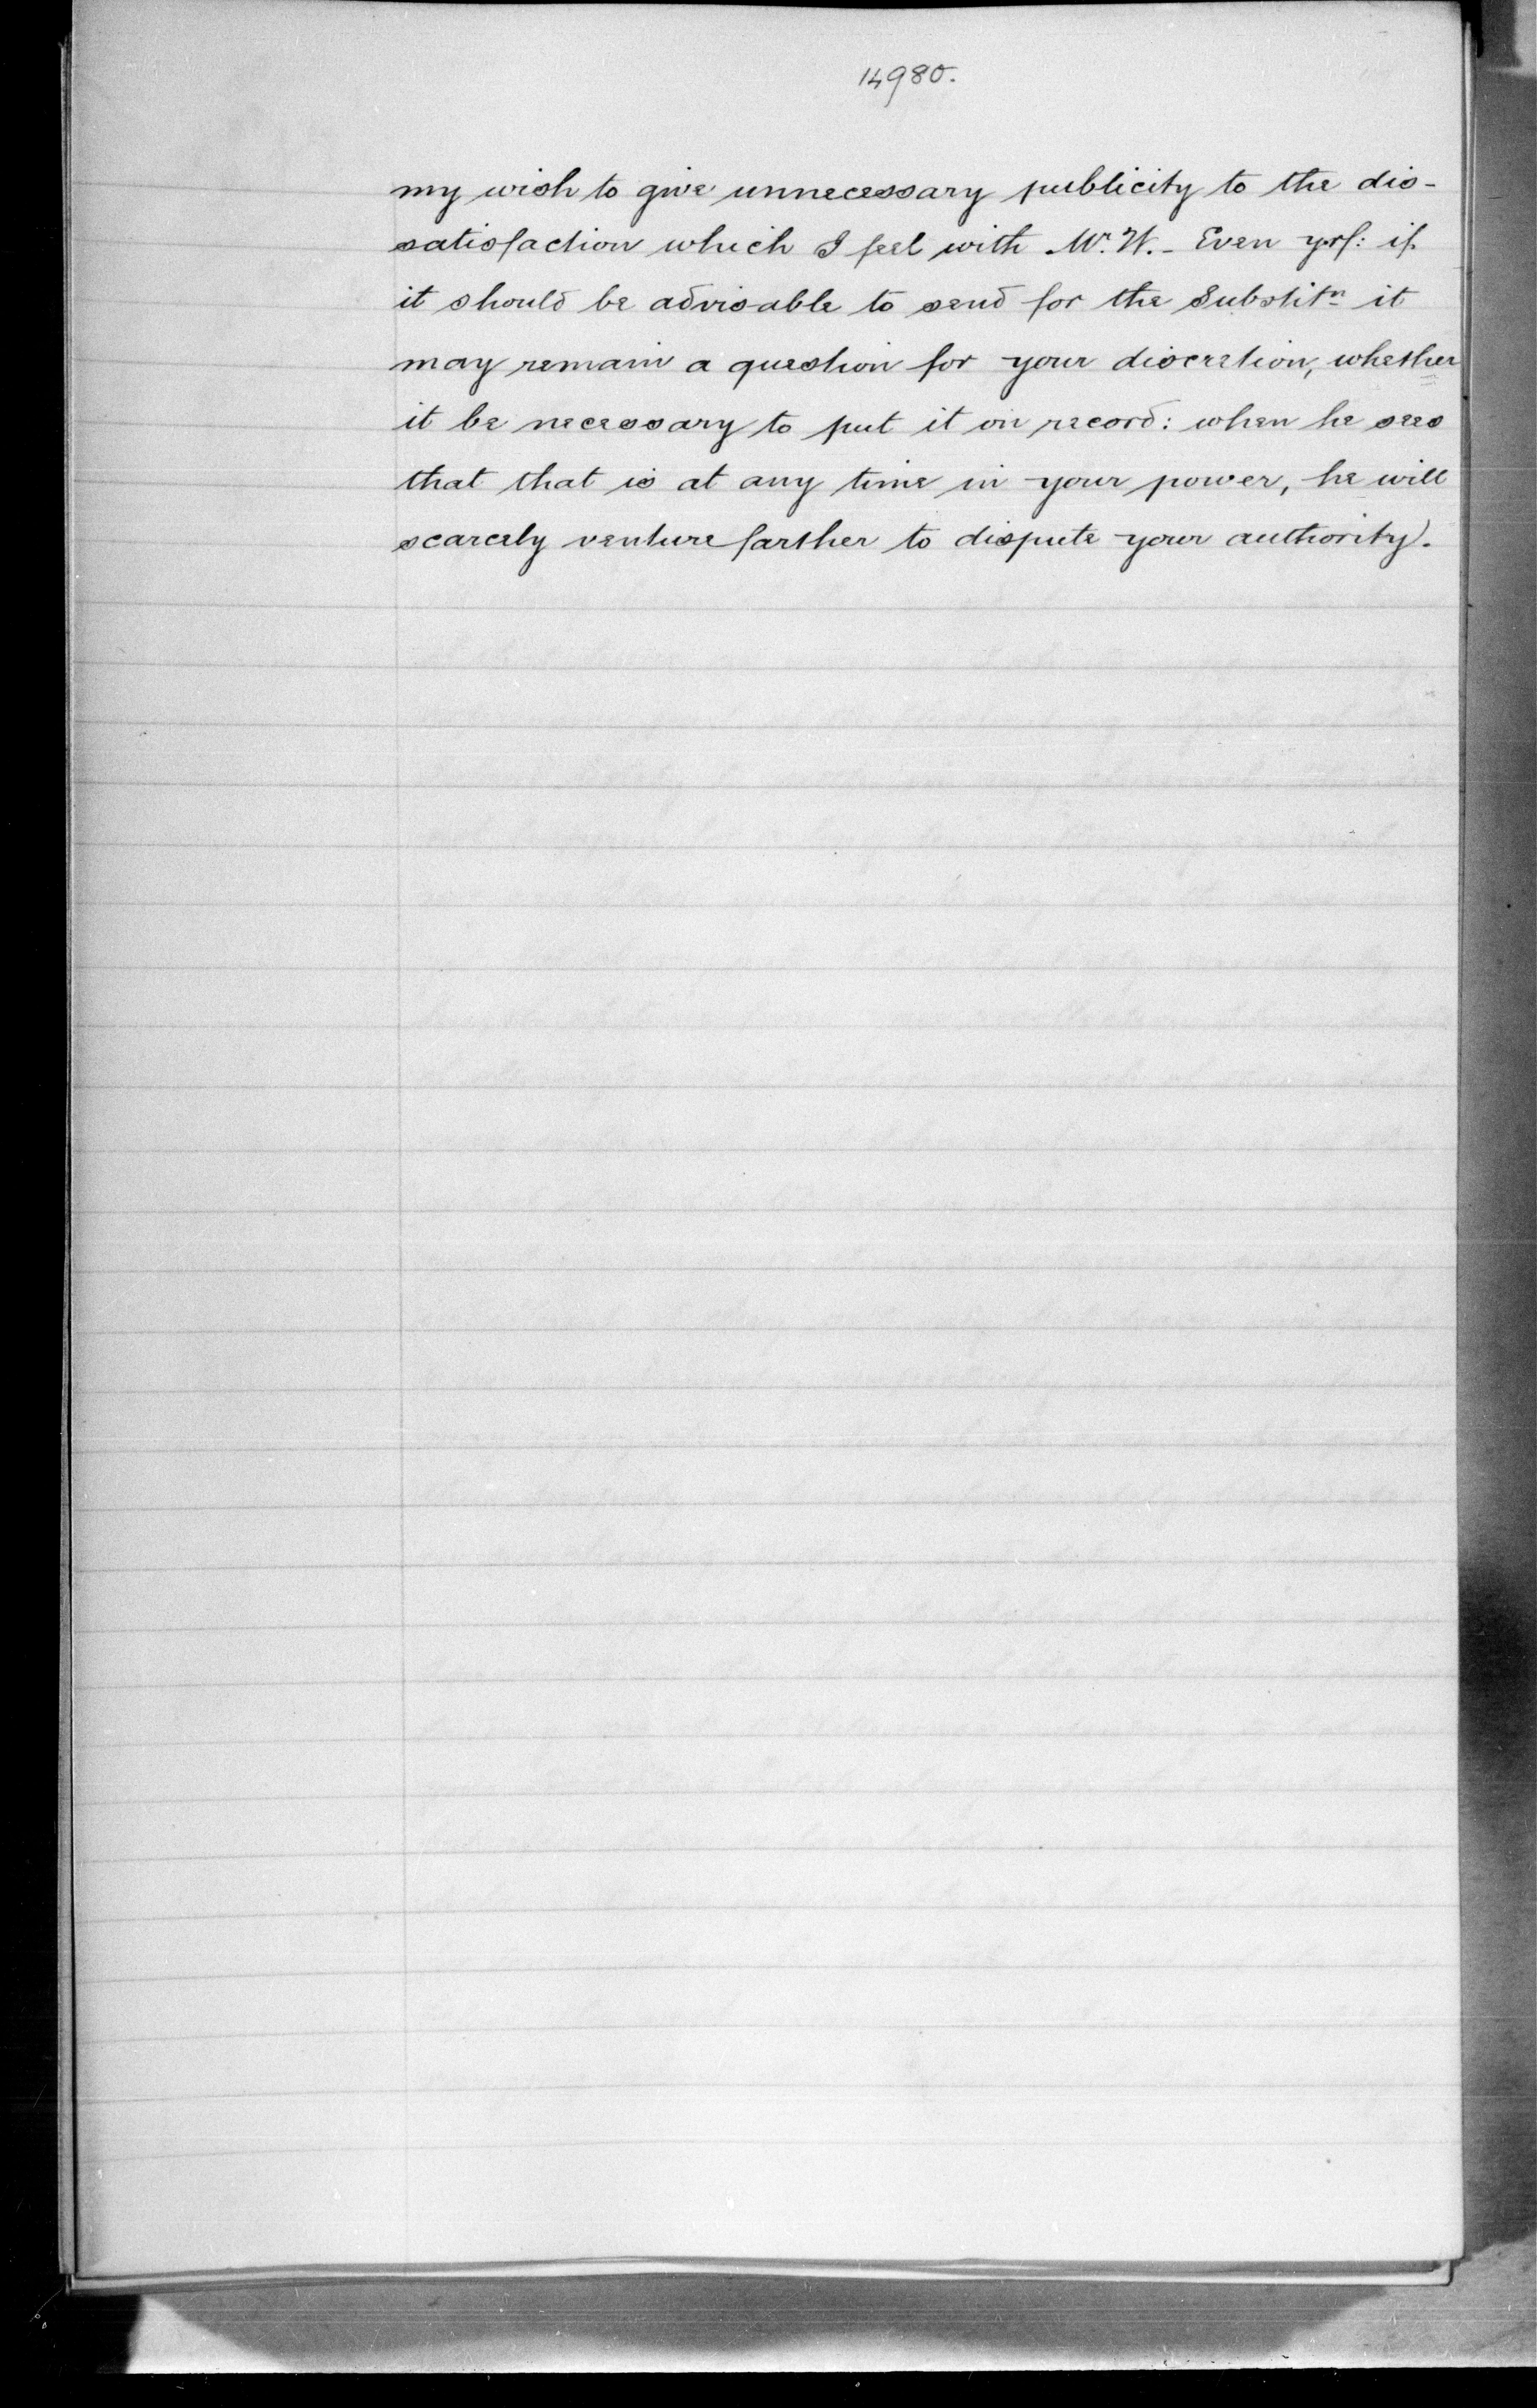 14980.
my wish to give unnecessary publicity to the dis-
satisfaction which I feel with Mr. W. - Even yrf: if
it should be advisable to send for the Substitn it
may remain a question for your discretion, whether
it be necessary to put it on record: when he sees
that that is at any time in your power, he will
scarcely venture farther to dispute your authority.